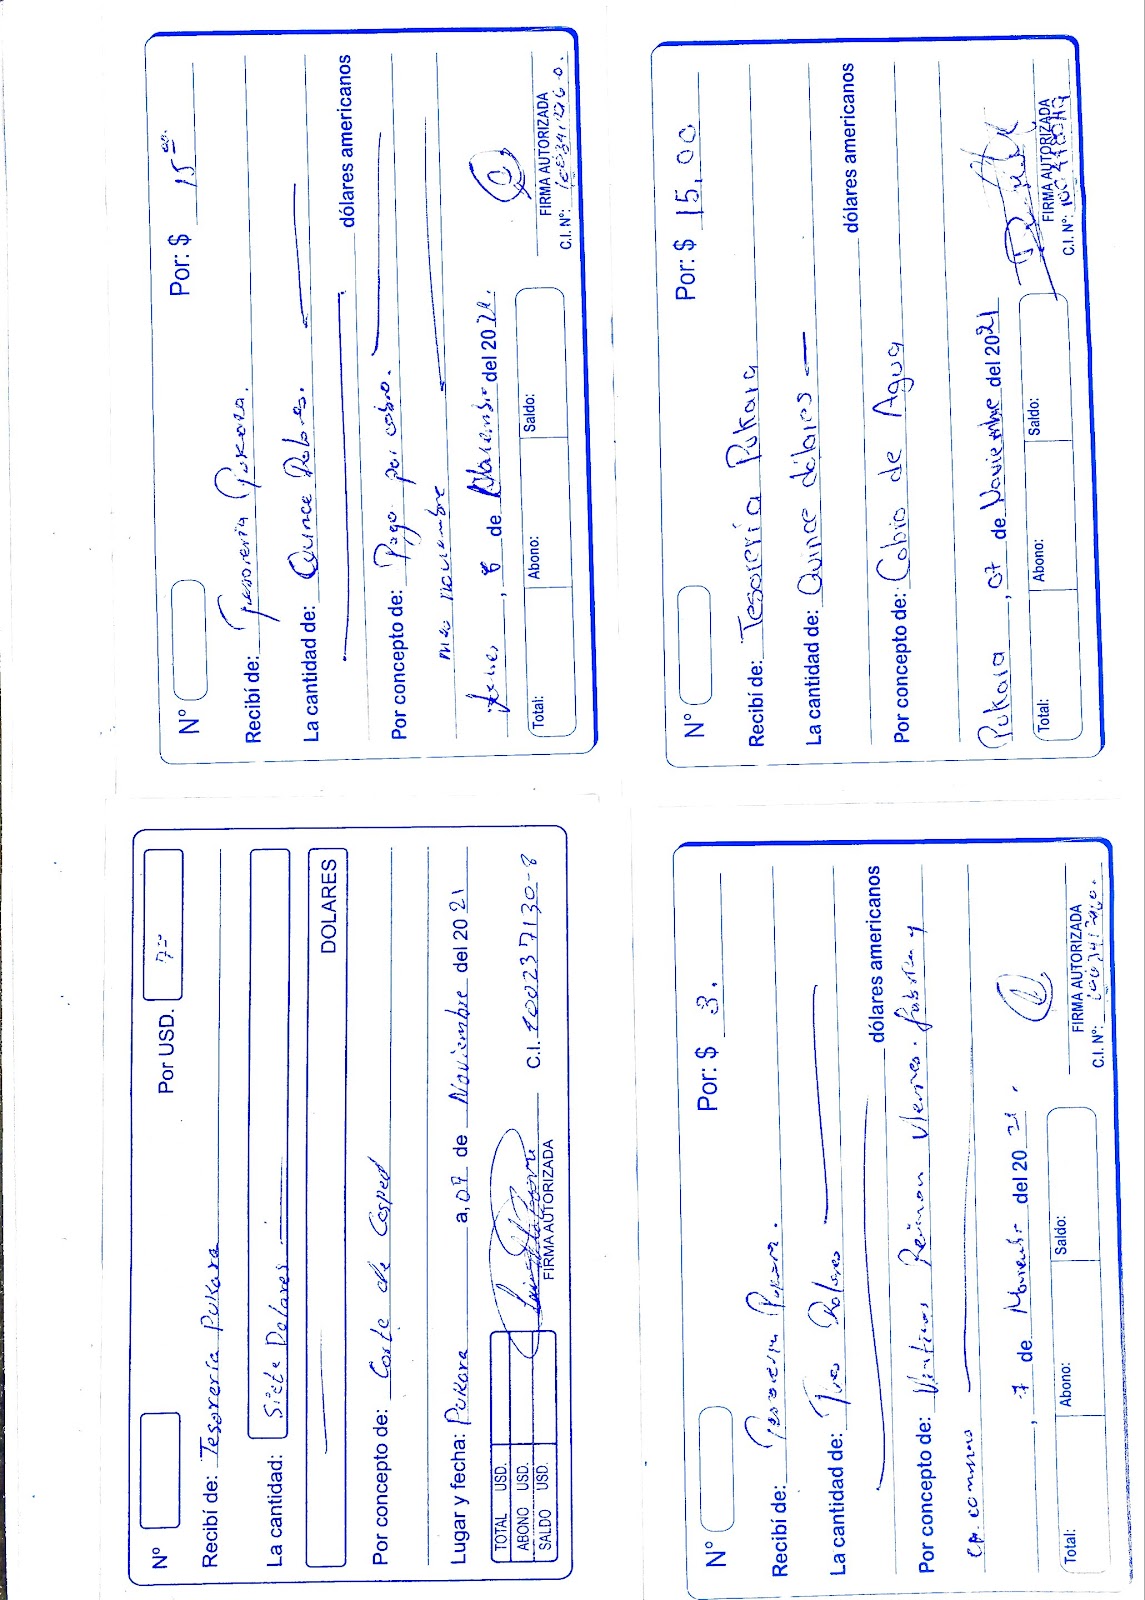 Nº Por USD. 7=
Recibí de: Tesorería Pukara
La cantidad: Siete Dolares
DOLARES
Por concepto de: Corte de Cesped
Lugar y fecha: Pukara a, 07 de Noviembre del 2021
TOTAL USD.
ABONO USD.
SALDO USD.
FIRMA AUTORIZADA C.I. 100237130-8
Nº Por: $ 3.
Recibí de: Tesorería Pukara.
La cantidad de: Tres Dolares
dólares americanos
Por concepto de: Viaticos Reunion viernes. y
, 7 de Noviembre del 2021.
Total: Abono: Saldo:
FIRMA AUTORIZADA
C.I. Nº:
Nº Por: $ 15 oo.
Recibí de: Tesoreria Pukara.
La cantidad de: Quince Dolares.
dólares americanos
Por concepto de: Pago por cobro.
mes noviembre
, 8 de Noviembre del 2021.
Total: Abono: Saldo:
FIRMA AUTORIZADA
C.I. Nº:
Nº Por: $ 15,00
Recibí de: Tesorería Pukara
La cantidad de: Quince dólares
dólares americanos
Por concepto de: Cobro de Agua
Pukara, 07 de Noviembre del 2021
Total: Abono: Saldo:
FIRMA AUTORIZADA
C.I. Nº: